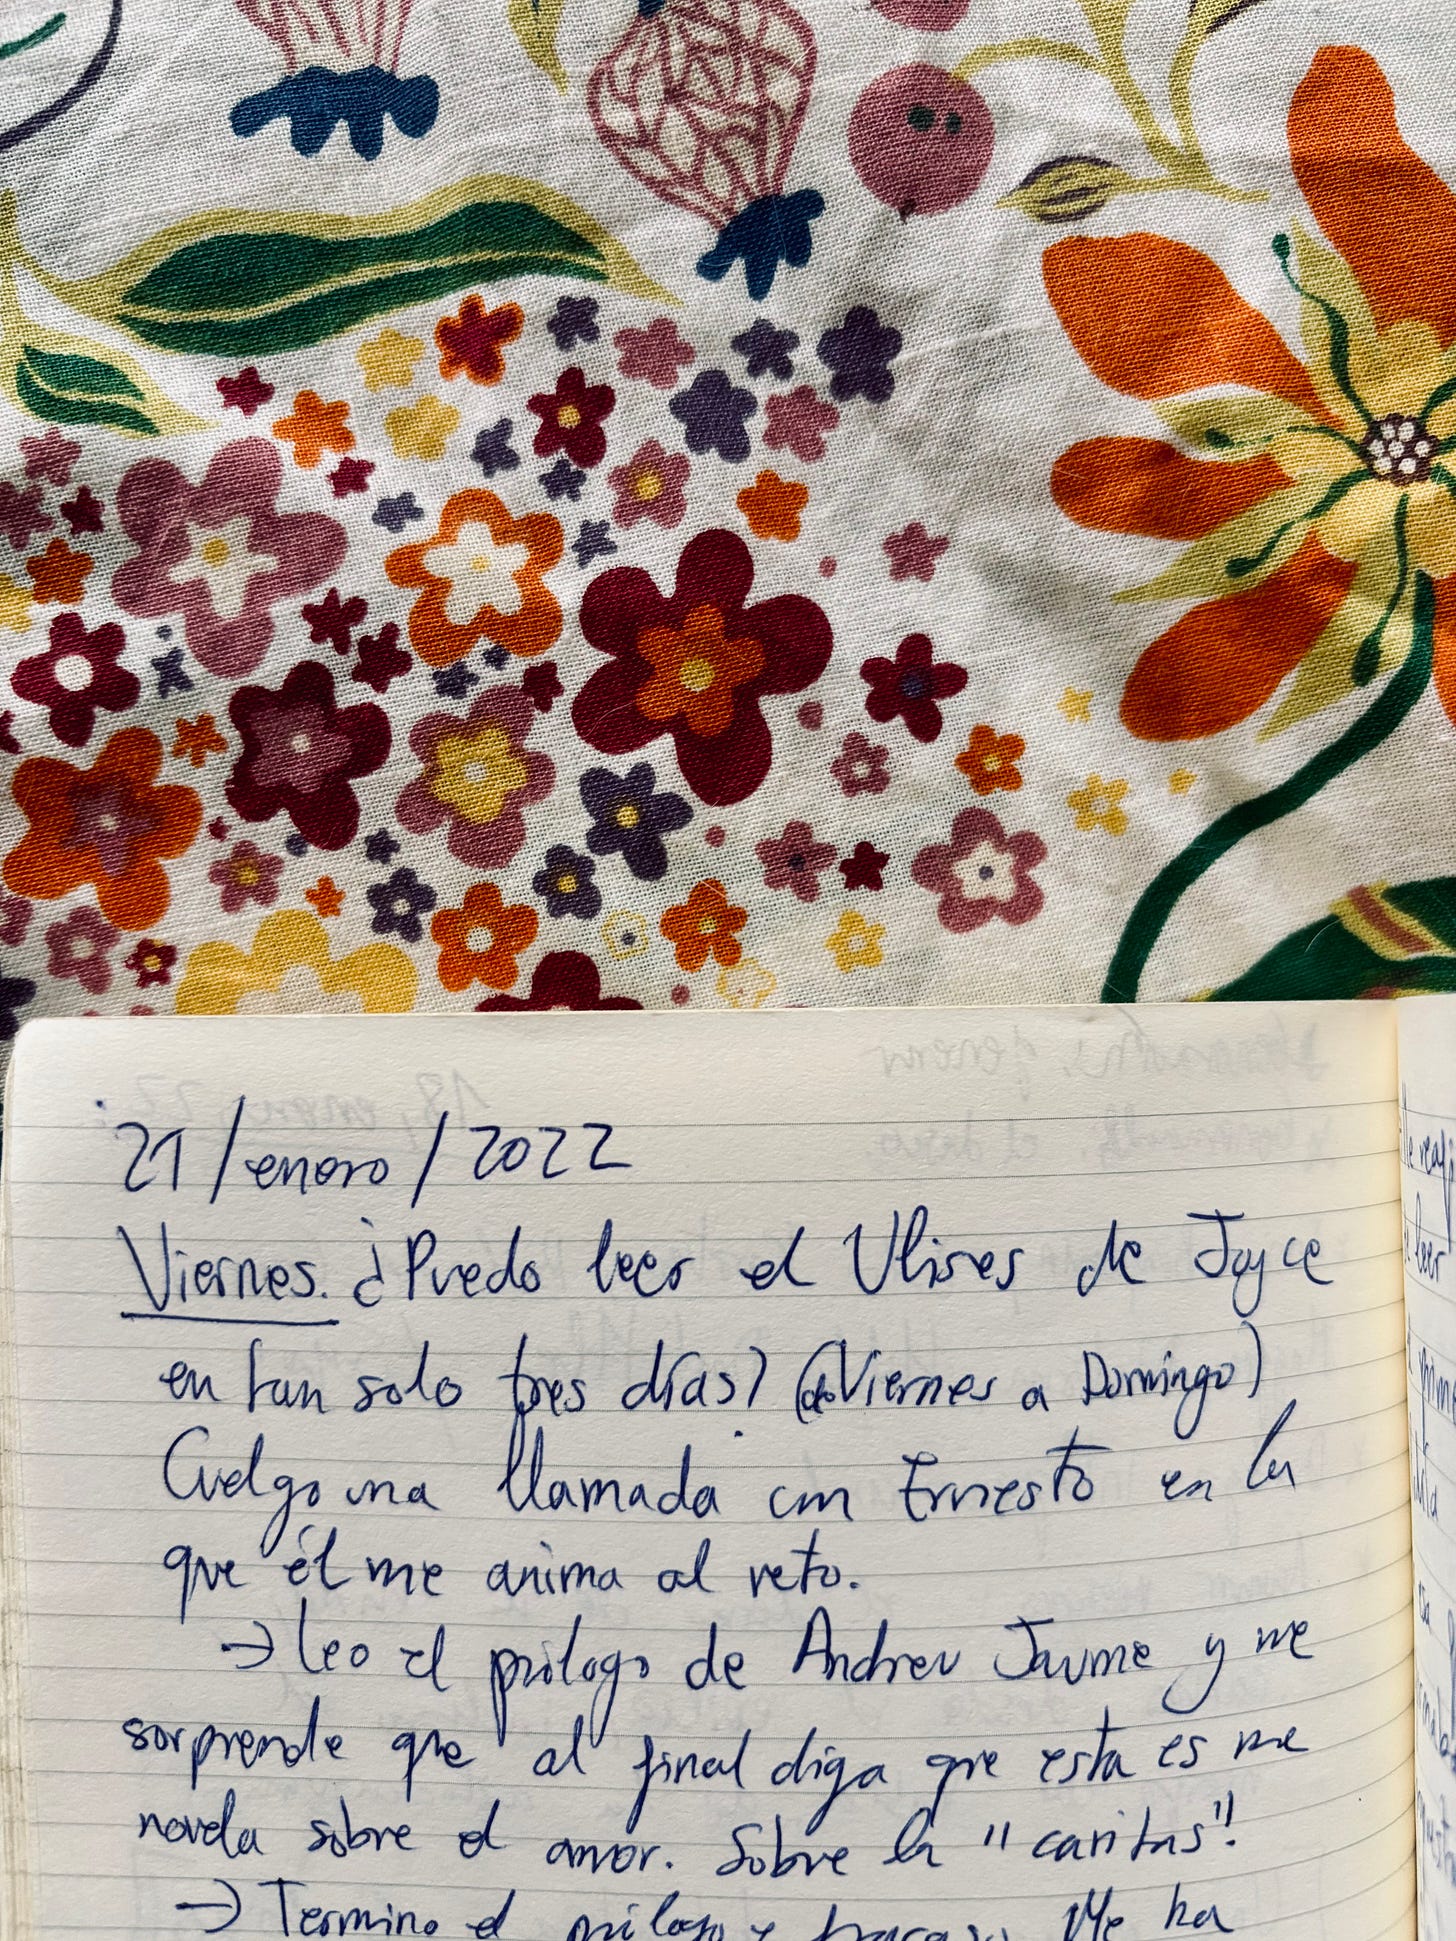 21/enero/2022
Viernes. ¿Puedo leer el Ulises de Joyce
en tan solo tres días? (de Viernes a Domingo)
Cuelgo una llamada con Ernesto en la
que él me anima al reto.
→ Leo el prólogo de Andreu Jaume y me
sorprende que al final diga que esta es una
novela sobre el amor. Sobre la "caritas".
→ Termino el prólogo y fracaso. Me ha